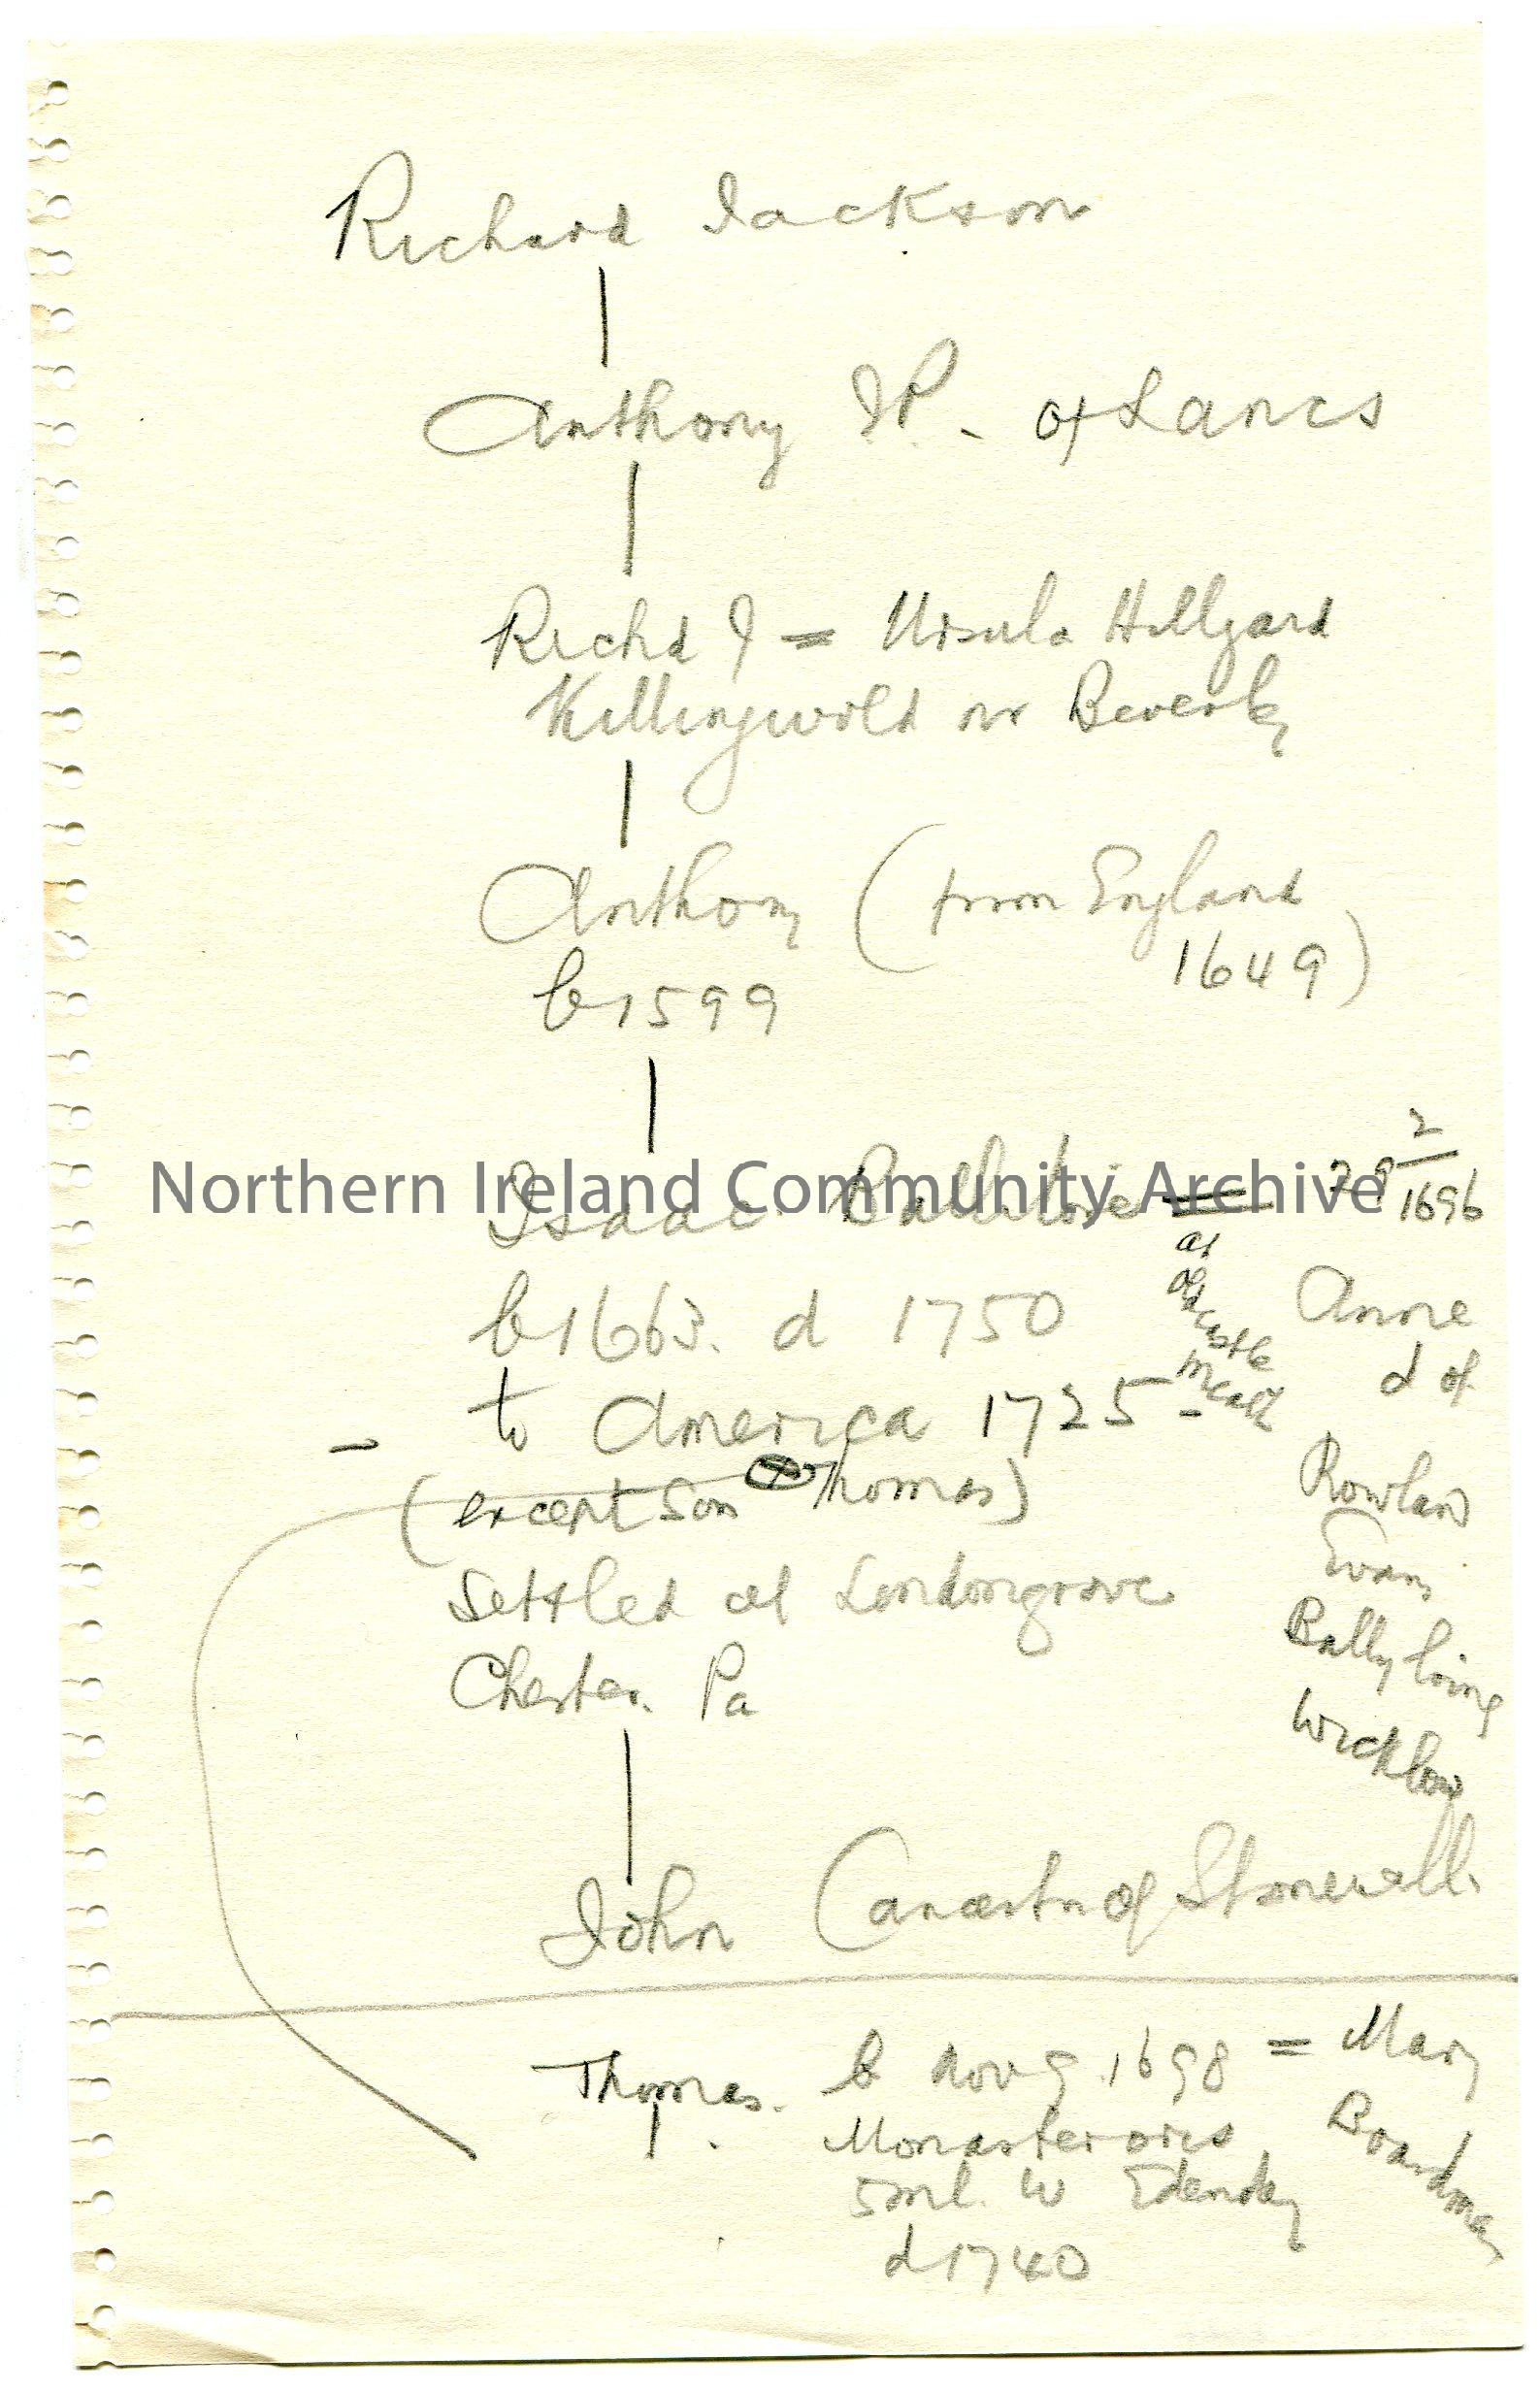 Richard Jackson
Anthony J.P. - of Lancs
Richd J = Ursula Hillyard
Killingwold nr Beverley
Anthony (from England
1649)
b 1599
Northern Ireland Community Archive
Isaac = 2
1696
at
Oldcastle
Meath
b 1663. d 1750
to America 1725 -
(except son Thomas)
Settled at Londongrove
Chester. Pa
Anne
d of
Rowland
Evans
Wicklow
John (ancestor of Stonewall.
Thomas. b Nov 9. 1698 = Mary
Boardman
Monasteroris
5ml. W Edenderry
d 1740